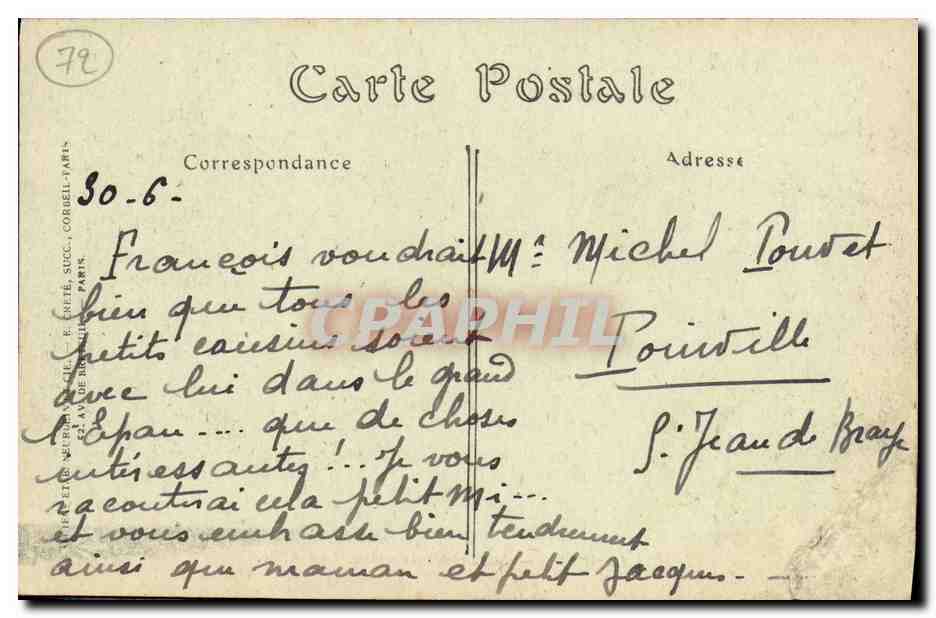 72
Carte Postale
Correspondance
Adresse
30-6-
François voudrait
bien que tous les
petits cousins soient
avec lui dans le grand
l'Epau .... que de choses
intéressantes !... Je vous
raconterai cela petit Mi...
et vous embrasse bien tendrement
ainsi que maman et petit Jacques -
Mr Michel Pouvet
Poinville
St Jean de Braye
CPAPHIL
CRETÉ, SUCC., CORBEIL-PARIS
PARIS.